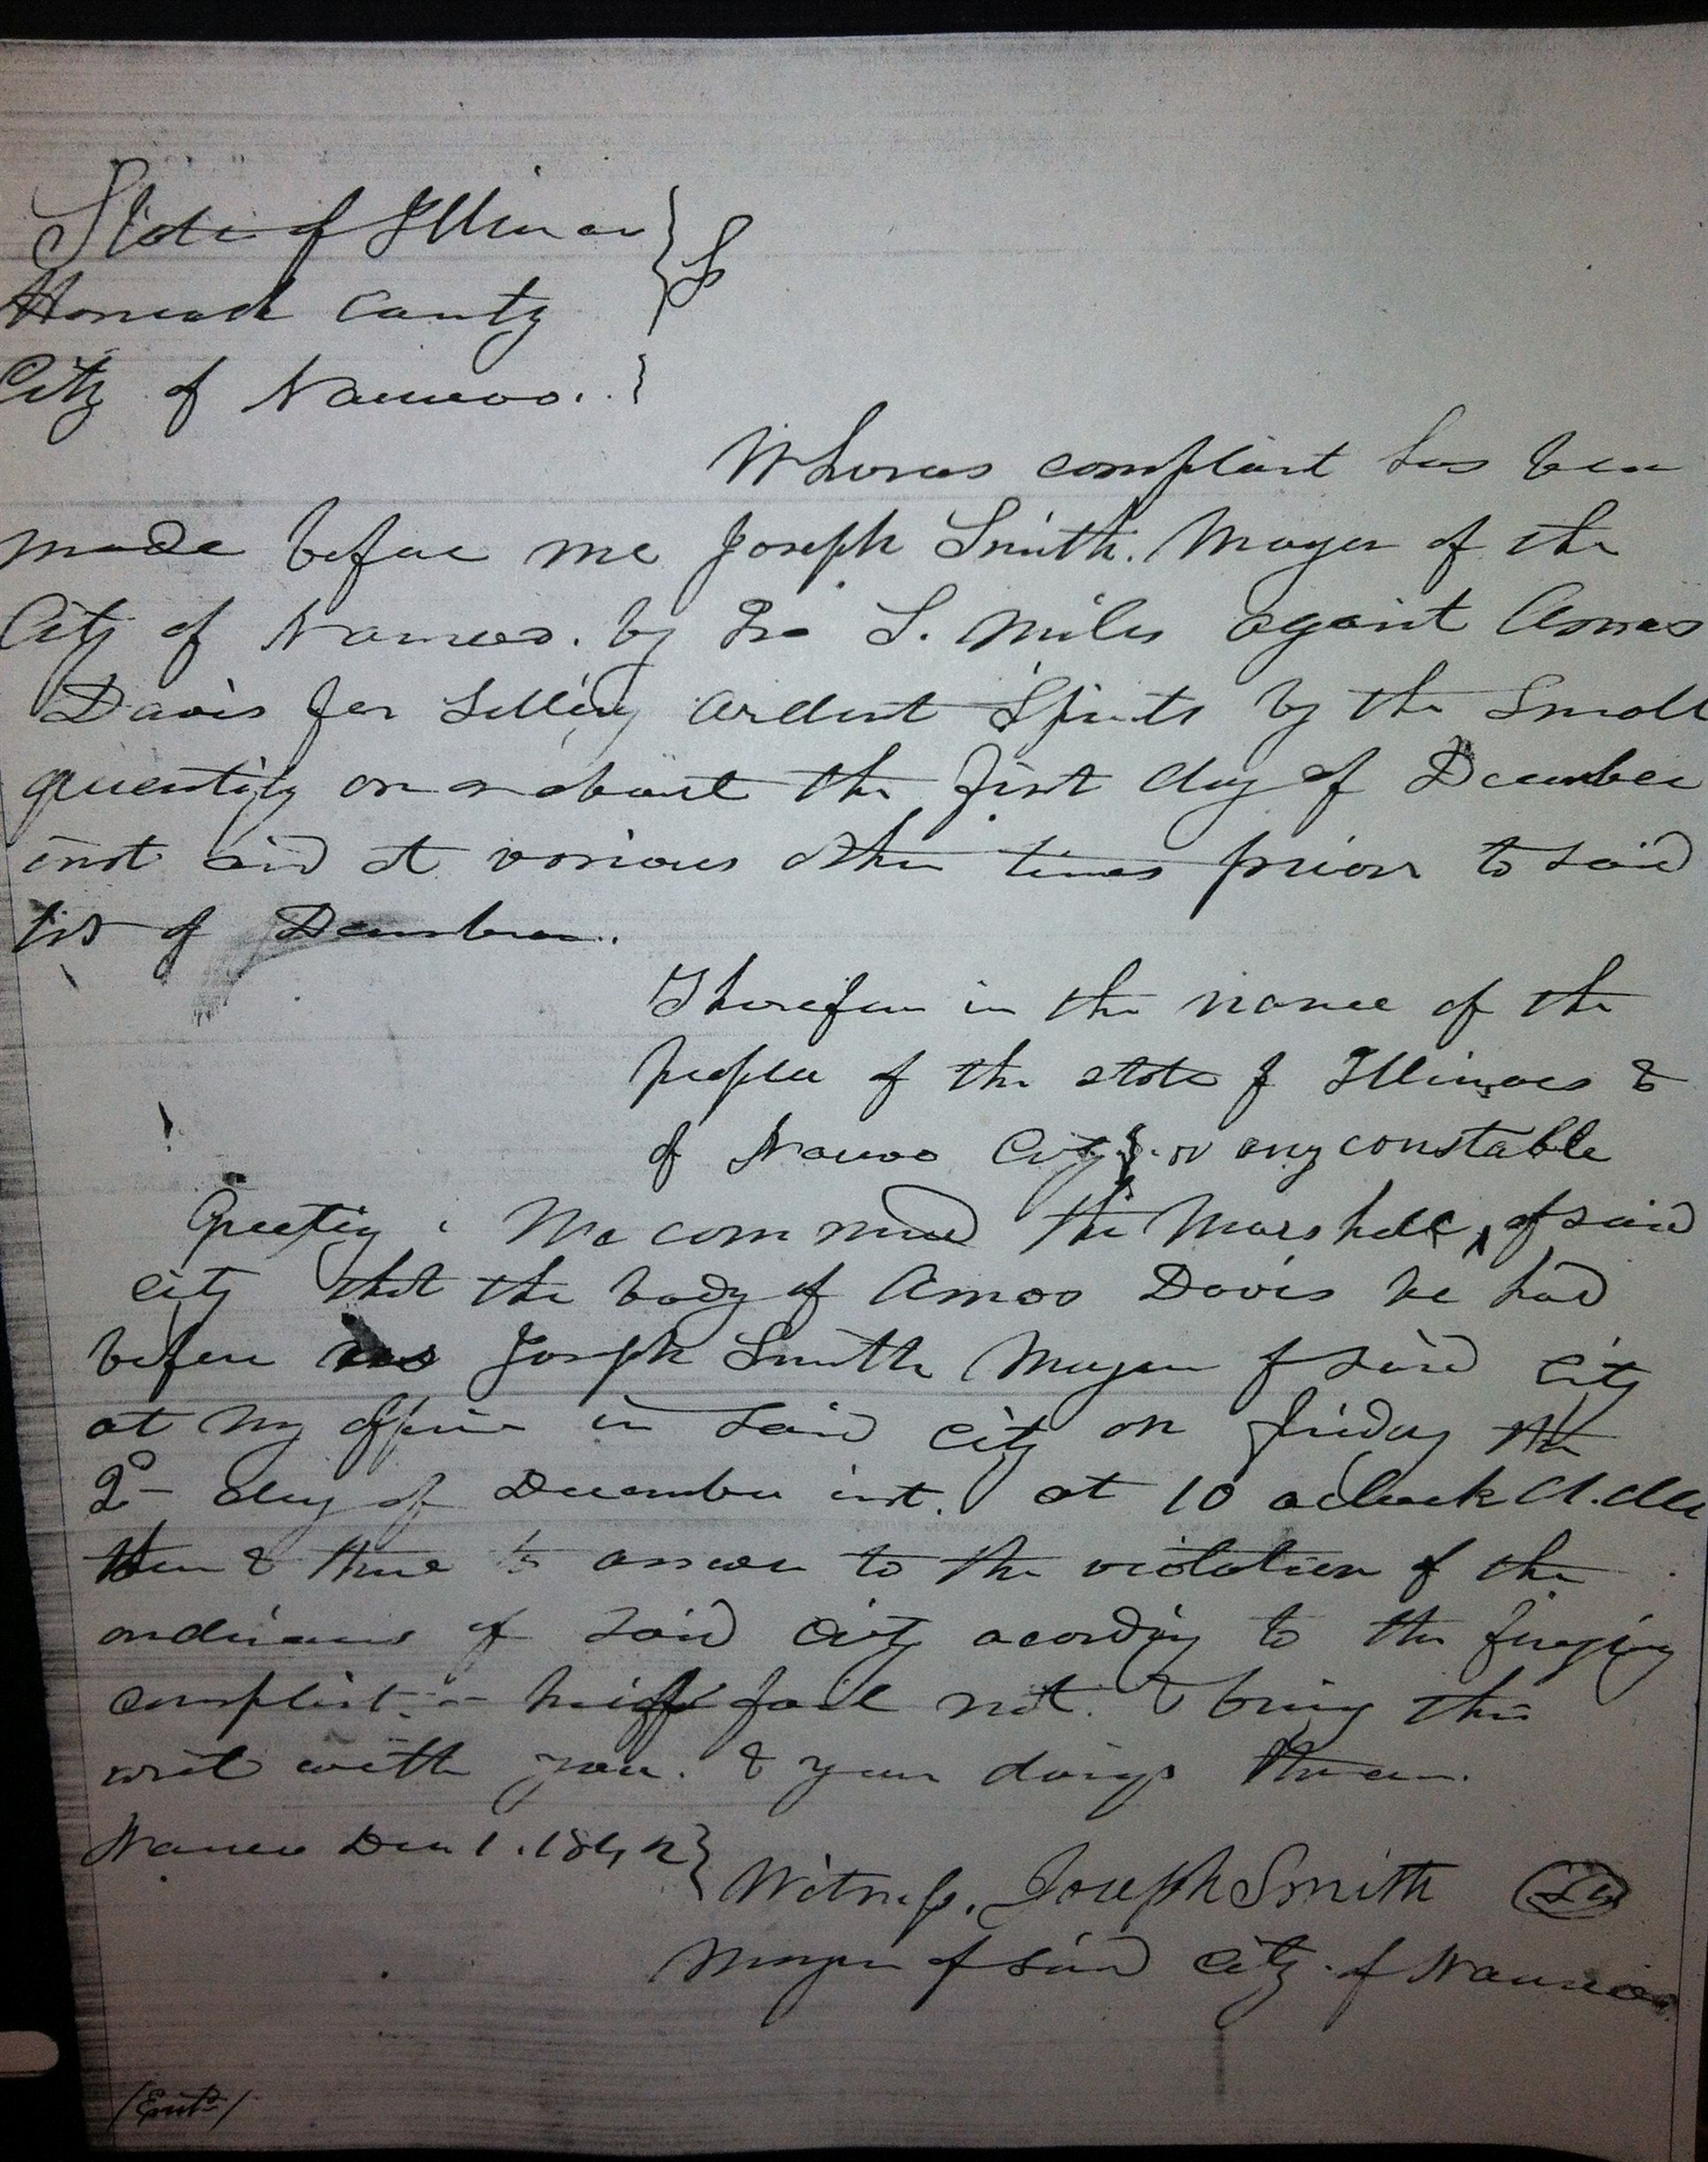 State of Illinois } Ss
Hancock County
City of Nauvoo. }
Whereas complaint has been
made before me Joseph Smith. Mayor of the
City of Nauvoo. by Ira S. Miles against Amos
Davis for selling ardent Spirits by the Small
quantity on or about the first day of December
inst and at various other times prior to said
first of December.
Therefore in the name of the
people of the state of Illinois &
of Nauvoo City }. or any constable
Greeting: We command the Marshall, ^ of said
city that the body of Amos Davis be had
before Joseph Smith Mayor of said City
at my office in said city on friday the
2d day of December inst. at 10 oclock A.M
then & there to answer to the violation of the
ordinance of said City acording to the foregoing
complaint. - fail not. & bring this
writ with you. & your doings thereon.
Nauvoo Dec 1. 1842 }
Witness. Joseph Smith (LS)
Mayor of said City of Nauvoo.